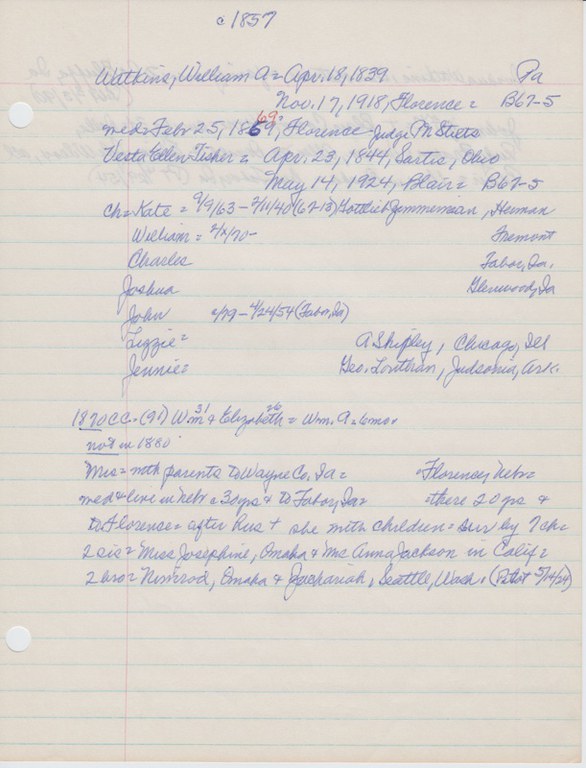 c 1857
Watkins, William A = Apr. 18, 1839 Pa
Nov. 17, 1918, Florence = B67-5
med = Febr 25, 1869, 69? Florence - Judge
Vesta Ellen Fisher = Apr. 23, 1844, Ohio
May 14, 1924, Blair = B67-5
Ch = Kate = 9/9/63 - 2/11/40 (67-13) Gottlieb Zimmerman, Herman
William = 2/2/70 - Fremont
Charles Tabor, Ia.
Joshua Glenwood, Ia
John 2/79 - 4/24/54 (Tabor, Ia)
Lizzie = A Shipley, Chicago, Ill
Jennie = Geo. Louthan, Judsonia, Ark.
1870 CC = (91) Wm 31 & Elizabeth 26 = Wm. A = 6 mos.
not in 1880
Mrs = with parents to Wayne Co. Ia = Florence, Nebr =
med & live in Nebr = 30 yrs & to Tabor, Ia = there 20 yrs &
to Florence = after hus + she with children = surv by 7 ch =
2 sis = Miss Josephine, Omaha & Mrs Anna Jackson in Calif =
2 bro = Nimrod, Omaha & Zachariah, Seattle, Wash. (Pilot 5/14/24)